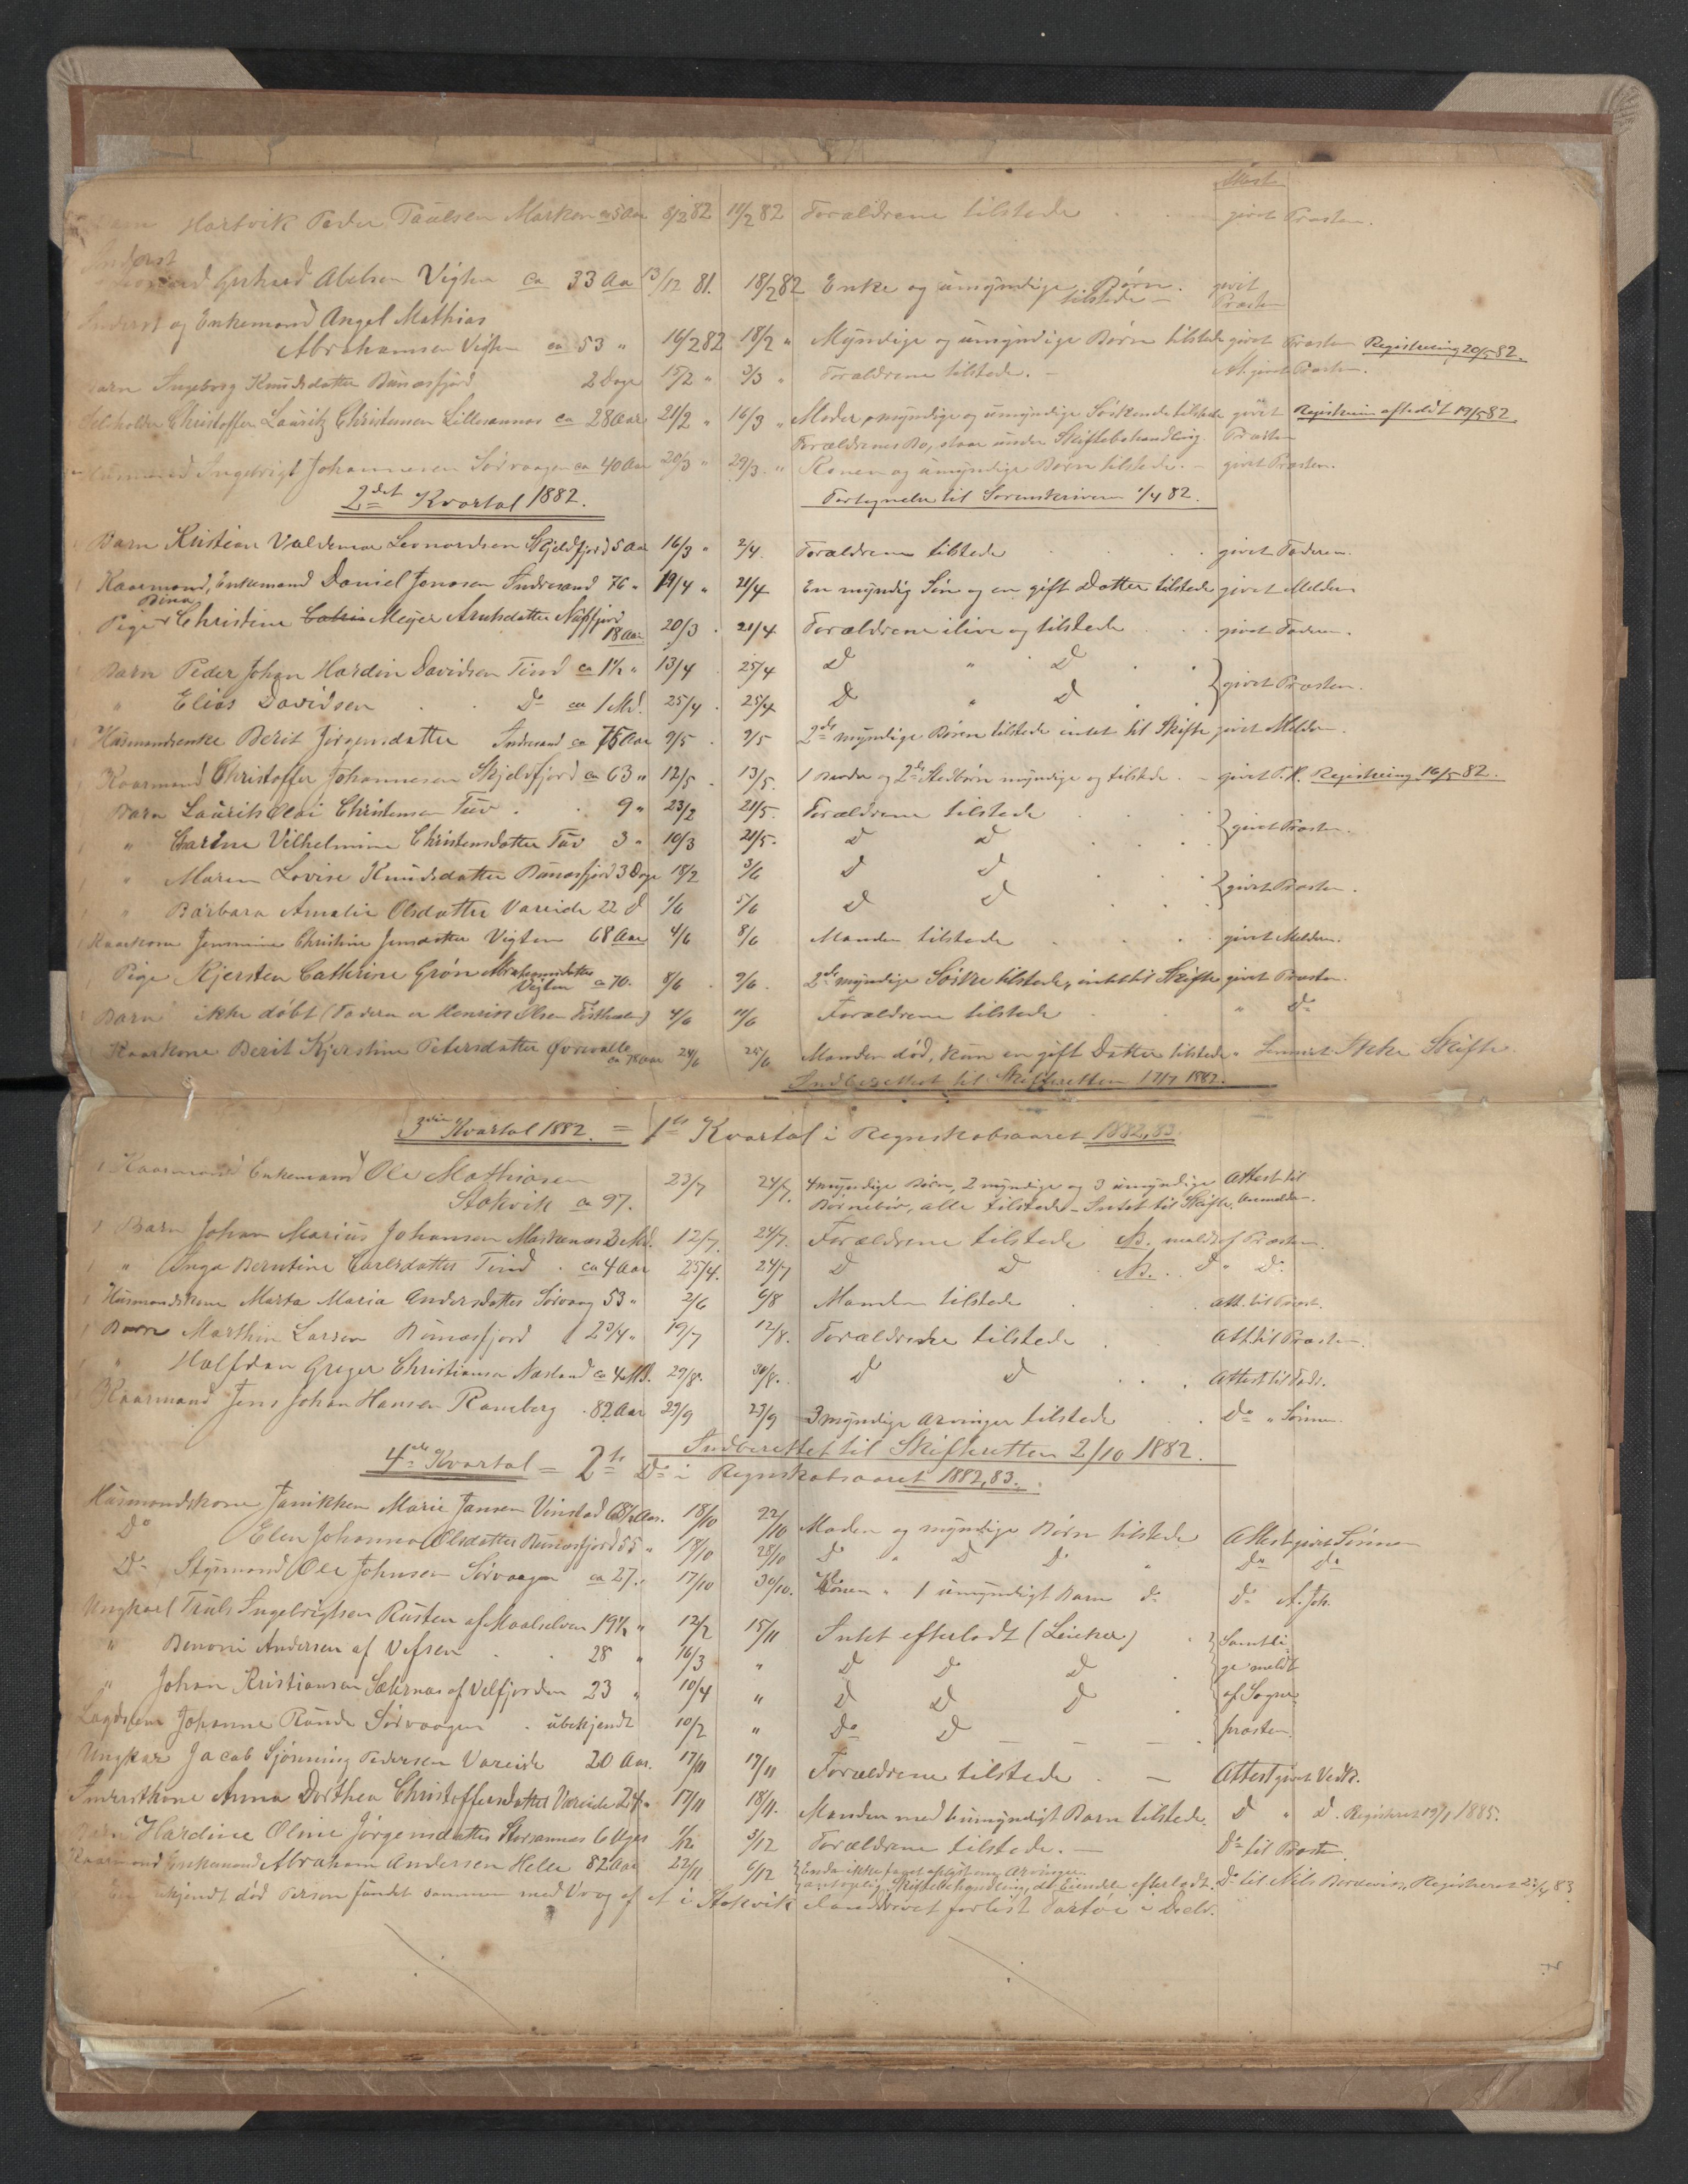 Attest
Barn Hartvik Peder Paulsen Marken ca 5 Aar 8/2 82 11/2 82 Forældrene tilstede givet Præsten.
Inderst
Gerhard Abelsen Vigten ca 33 Aar 13/12 81. 18/2 82 Enke og umyndige Børn tilstede – givet Præsten
Inderst og Enkemand Angel Mathias
Abrahamsen Vigten ca 53 " 16/2 82 18/2 " Myndige og umyndige Børn tilstede givet Præsten Registrering 20/5 82.
Barn Ingeborg Knudsdatter Bunæsfjord 2 Dage 15/2 " 3/3 " Forældrene tilstede. – At. givet Præsten.
Christoffer Lauritz Christensen Lillesannæs ca 28 Aar 21/2 " 16/3 " Moder, myndige og umyndige Søskende tilstede givet Registrering afholdt 19/5 82
Forældrenes Bo, staar under Skiftebehandling. Præsten
Husmand Ingebrigt Johannesen Sørvaagen ca 40 Aar 20/3 " 29/3. " Konen og umyndige Børn tilstede. – givet Præsten.
2det Kvartal 1882. Fortegnelse til Sorenskriveren 1/4 82.
Barn Kristian Valdemar Leonardsen Skjeldfjord 5 Aar 16/3 " 2/4. Forældrene tilstede givet Faderen.
Kaarmand, Enkemand Daniel Jonasen Indresand 76 " 19/4 " 21/4 En myndig Søn og en gift Datter tilstede givet Melderen
Pige Christine Meyer Arntsdatter Nusfjord
18 Aar 20/3 . 21/4 Forældrene ilive og tilstede givet Faderen.
Barn Peder Johan Hardin Davidsen Tind ca 1½ " 13/4 25/4 D " D
" Elias Davidsen Do ca 1 Md. 25/4 . 25/4 D " D } givet Præsten.
Husmandsenke Berit Jørgensdatter Indresand ca 75 Aar 9/5 . 9/5 2de myndige Børn tilstede intet til Skifte givet Melderen.
Kaarmand Christoffer Johannesen Skjeldfjord ca 63 " 12/5 . 13/5. 1 Broder og 2de Stedbørn myndige og tilstede. – givet Registrering 16/5 82.
Barn Laurits Olai Christensen Tuv 9 " 23/2 21/5. Forældrene tilstede
" Vilhelmine Christensdatter Tuv 3 " 10/3 21/5. D D } givet Præsten.
" Maren Lovise Knudsdatter Bunæsfjord 3 Dage 18/2 3/6 D D
" Barbara Amalie Olsdatter Vareide 22 d 1/6 5/6 D D } givet Præsten.
Kaarkone Jemmine Christine Jensdatter Vigten 68 Aar 4/6 8/6 Manden tilstede givet Melderen.
Pige Kjersten Cathrine Grøn Abrahamsdatter
Vigten ca 70. 8/6 . 9/6. 2de myndige Søstre tilstede, intet til Skifte givet Præsten.
Barn ikke døbt (Faderen er Henrik Olsen) 4/6 11/6 Forældrene tilstede " Do
Kaarkone Berit Kjerstine Petersdatter
ca 78 Aar 24/6 25/6 Manden død, kun en gift Datter tilstede. Skifte.
Indberettet til Skifteretten 17/7 1882.
3die Kvartal 1882. = 1ste Kvartal i Regnskabsaaret 1882,83.
Kaarmand Enkemand Ole Mathiasen
Stokvik ca 97. 23/7 24/7. 4 myndige Børn, 2 myndige og 3 umyndige Attest til
Børnebørn, alle tilstede – Intet til Skifte. Anmelderen.
Barn Johan Marius Johansen Markenæs 3 Md. 12/7. 24/7. Forældrene tilstede NB. meldt af Præsten.
" Inga Berntine Carlsdatter Tind . ca 4 Aar 25/4. 24/7 D D NB. . D " D.
Husmandskone Marta Maria Andersdatter Sørvaag 53 " 2/6 6/8 Manden tilstede Att. til Præst.
Barn Marthin Larsen Bunæsfjord 2 3/4 " 19/7 12/8. Forældrene tilstede Att. til Præsten
" Halfdan Greger Christiansen Næsland ca 4 Md. 29/8. 30/8. D D Attest til Fader.
Kaarmand Jens Johan Hansen Ramberg . 82 Aar 23/9 23/9 3 myndige Arvinger tilstede Do " Sønnen
Indberettet til Skifteretten 2/10 1882.
4de Kvartal = 2te Do i Regnskabsaaret 1882,83.
Husmandskone Janikken Marie Jansen Vinstad 68½ Aar. 18/10 22/10 Manden og myndige Børn tilstede Attest givet Sønnen
Do Elen Johanna Olsdatter Bunæsfjord 55 " 18/10 28/10 D " D D " Do Do
Do Styrmand Ole Johnsen Sørvaagen ca 27 " 17/10 30/10. Konen " 1 umyndigt Barn do Do A. Joh.
Ungkarl Truls Ingebrigtsen Rusten af Maalselven 19½ " 12/2 15/11 Intet efterladt (Leiekar) } Samtli-
" Benoni Andersen af Vefsen 28 " 16/3 " D D D ge meldt
" Johan Kristiansen Sæternæs af Velfjorden 23 " 10/4 " D D D af Sogne-
Johanne Runde Sørvaagen . ubekjendt 10/2 " Do D – – – præsten.
Ungkar Jacob Hjønning Pedersen Vareide 20 Aar. 17/11 17/11 Forældrene tilstede . – Attest givet Vedk.
Inderstkone Anna Dorthea Christoffersdatter Vareide 24 " 17/11 18/11. Manden med 1 umyndigt Barn tilstede. D " D. Registreret 19/1 1885.
Barn Hardine Oline Jørgensdatter Storsannæs 6 Uger 1/12 3/12 Forældrene tilstede. – Do til Præsten
Kaarmand Enkemand Abraham Andersen Helle 82 Aar 22/11 6/12 { Enda ikke faaet oplyst om Arvinger.
Skiftebehandling, da Eiendele efterladt. Do til Nils Registreret 23/4 83.
En ukjendt død Person fundet sammen med Vrag af et i Stokvik ilanddrevet forlist Fartøi